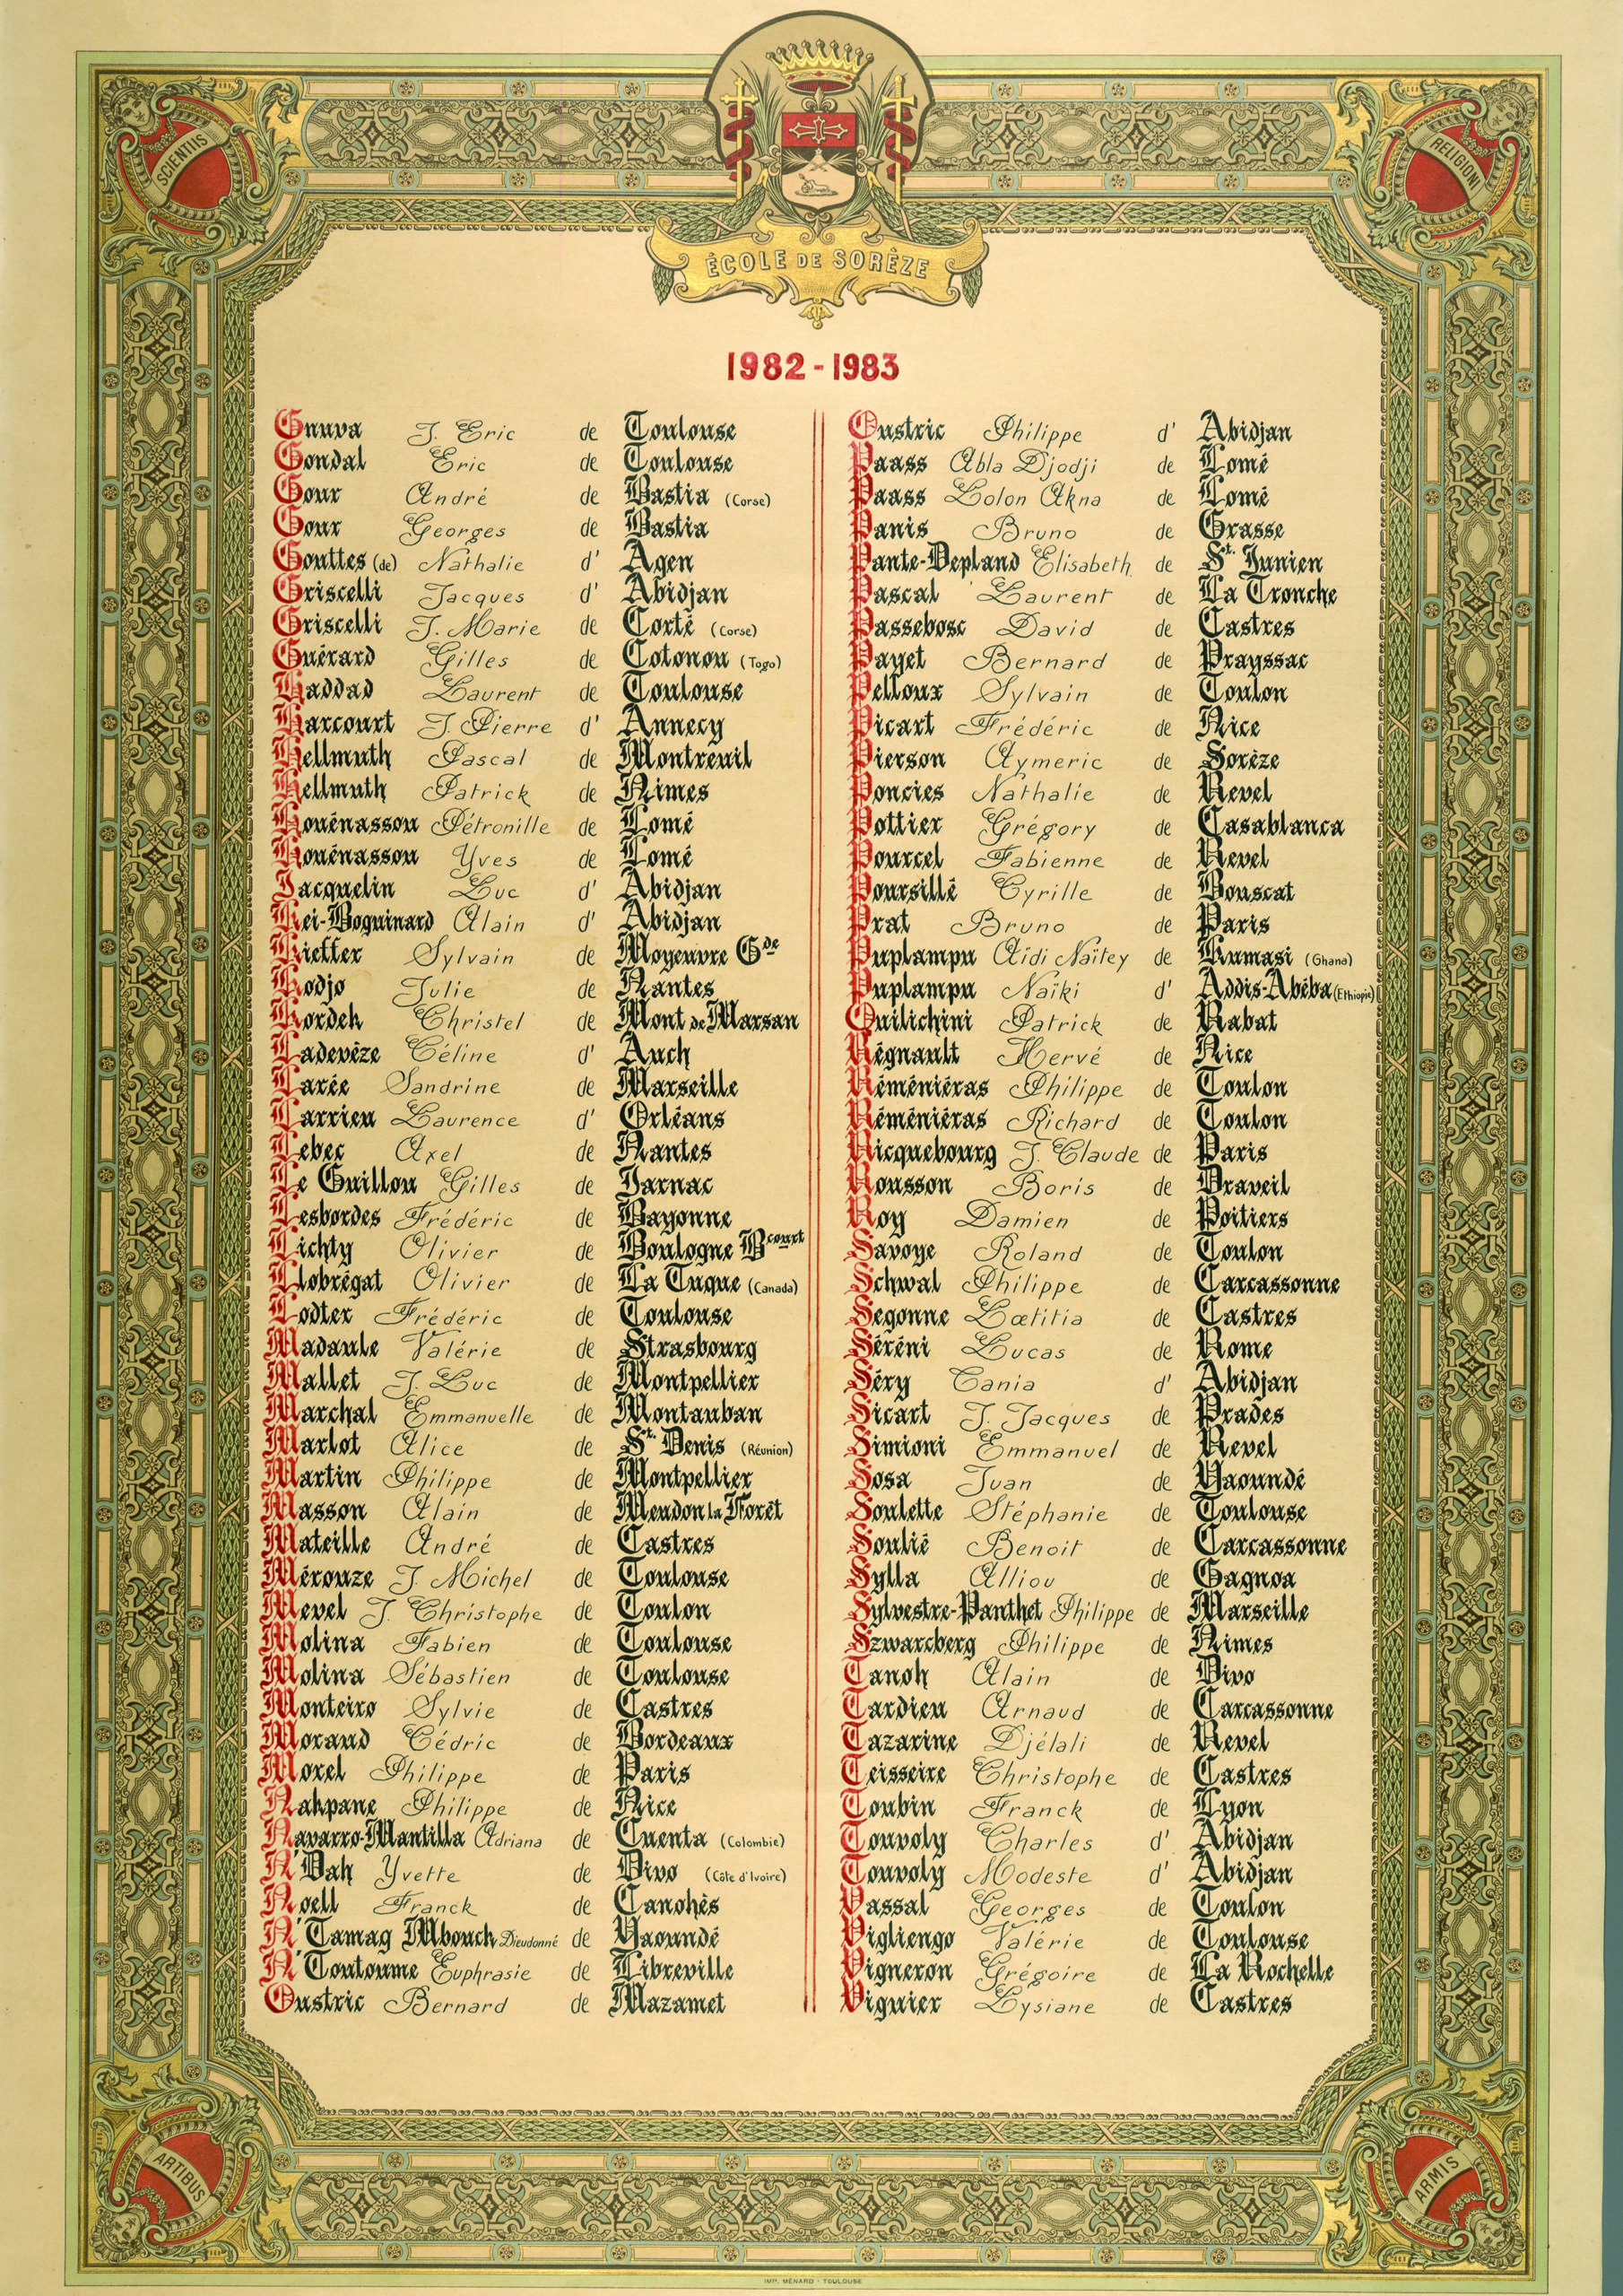 SCIENTIIS
RELIGIONI
ÉCOLE DE SORÈZE
1982 - 1983
Gnuva J. Eric de Toulouse
Gondal Eric de Toulouse
Gour André de Bastia (Corse)
Gour Georges de Bastia
Gouttes (de) Nathalie d' Agen
Griscelli Jacques d' Abidjan
Griscelli J. Marie de Corté (Corse)
Guérard Gilles de Cotonou (Togo)
Haddad Laurent de Toulouse
Harcourt J. Pierre d' Annecy
Hellmuth Pascal de Montreuil
Hellmuth Patrick de Nimes
Houénassou Pétronille de Lomé
Houénassou Yves de Lomé
Jacquelin Luc d' Abidjan
Kei-Boguinard Alain d' Abidjan
Kieffer Sylvain de Moyeuvre Gde
Kodjo Julie de Nantes
Kordeh Christel de Mont de Marsan
Ladevèze Céline d' Auch
Larée Sandrine de Marseille
Larrieu Laurence d' Orléans
Lebec Axel de Nantes
Le Guillou Gilles de Jarnac
Lesbordes Frédéric de Bayonne
Lichty Olivier de Boulogne Bcourt
Llobrégat Olivier de La Tuque (Canada)
Lodter Frédéric de Toulouse
Madaule Valérie de Strasbourg
Mallet J. Luc de Montpellier
Marchal Emmanuelle de Montauban
Marlot Alice de St. Denis (Réunion)
Martin Philippe de Montpellier
Masson Alain de Meudon la Forêt
Mateille André de Castres
Mérouze J. Michel de Toulouse
Mevel J. Christophe de Toulon
Molina Fabien de Toulouse
Molina Sébastien de Toulouse
Monteiro Sylvie de Castres
Morand Cédric de Bordeaux
Morel Philippe de Paris
Nahpane Philippe de Nice
Navarro-Mantilla Adriana de Cuenta (Colombie)
N'Dah Yvette de Divo (Côte d'Ivoire)
Noell Franck de Canohès
N'Tamag Mbouck Dieudonné de Yaoundé
N'Toutoume Euphrasie de Libreville
Oustric Bernard de Mazamet
Oustric Philippe d' Abidjan
Paass Abla Djodji de Lomé
Paass Lolon Akna de Lomé
Panis Bruno de Grasse
Pante-Depland Elisabeth de St. Junien
Pascal Laurent de La Tronche
Passebosc David de Castres
Payet Bernard de Prayssac
Pelloux Sylvain de Toulon
Picart Frédéric de Nice
Pierson Aymeric de Sorèze
Poncies Nathalie de Revel
Pottier Grégory de Casablanca
Pourcel Fabienne de Revel
Poursillé Cyrille de Bouscat
Prat Bruno de Paris
Puplampu Aidi Naïtey de Kumasi (Ghana)
Puplampu Naïki d' Addis-Abéba (Ethiopie)
Quilichini Patrick de Rabat
Régnault Hervé de Nice
Réméniéras Philippe de Toulon
Réméniéras Richard de Toulon
Ricquebourg J. Claude de Paris
Rousson Boris de Draveil
Roy Damien de Poitiers
Savoye Roland de Toulon
Schwal Philippe de Carcassonne
Segonne Lœtitia de Castres
Séréni Lucas de Rome
Séry Tania d' Abidjan
Sicart J. Jacques de Prades
Simioni Emmanuel de Revel
Sosa Juan de Yaoundé
Soulette Stéphanie de Toulouse
Soulié Benoit de Carcassonne
Sylla Alliou de Gagnoa
Sylvestre-Panthet Philippe de Marseille
Szwarcberg Philippe de Nimes
Tanoh Alain de Divo
Tardieu Arnaud de Carcassonne
Tazarine Djélali de Revel
Teisseire Christophe de Castres
Toubin Franck de Lyon
Touvoly Charles d' Abidjan
Touvoly Modeste d' Abidjan
Vassal Georges de Toulon
Vigliengo Valérie de Toulouse
Vigneron Grégoire de La Rochelle
Viguier Lysiane de Castres
ARTIBUS
ARMIS
IMP. MÉNARD - TOULOUSE